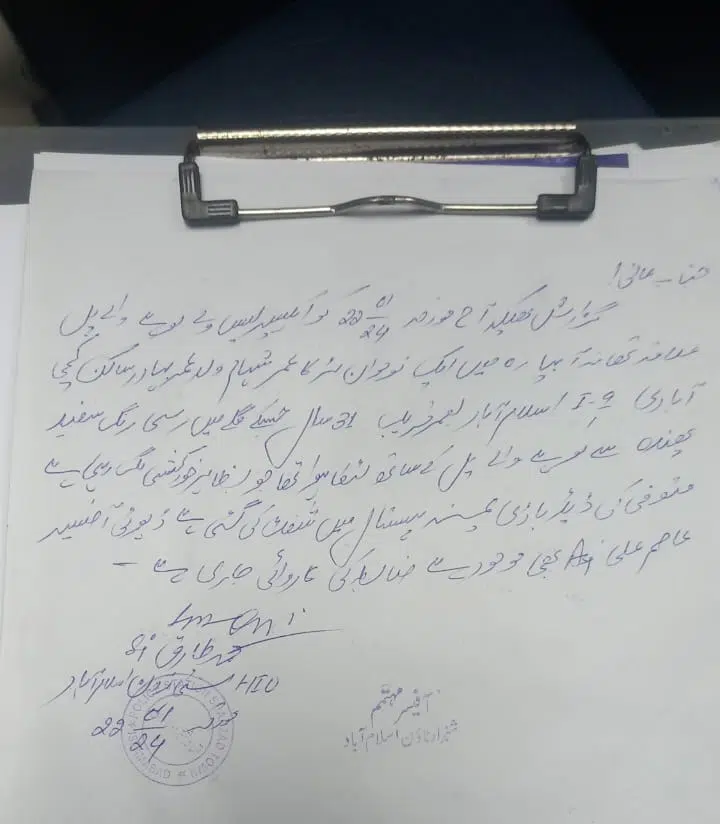 جناب عالی!
گزارش ہیکہ آج مورخہ 22 01/24 کو ایکسپریس وے لوہے والے پل
علاقہ تھانہ آبپارہ میں ایک نوجوان لڑکا عمر ولد عمر بہادر ساکن کچی
آبادی I-9 اسلام آباد بعمر قریب 31 سال جسکے گلے میں رسی رنگ سفید
پھندہ سے لوہے والے پل کے ساتھ لٹکا ہوا تھا جو بظاہر خودکشی لگ رہی ہے
متوفی کی ڈیڈ باڈی پمز ہسپتال میں شفٹ کی گئی ہے ڈیوٹی آفیسر
عاصم علی ASI بھی موجود ہے ضابطہ کی کاروائی جاری ہے -
طارق SI
HIU اسلام آباد
مورخہ 22 01/24
POLICE STATION SHAHZAD TOWN ISLAMABAD
آفیسر مہتمم
شہزاد ٹاؤن اسلام آباد